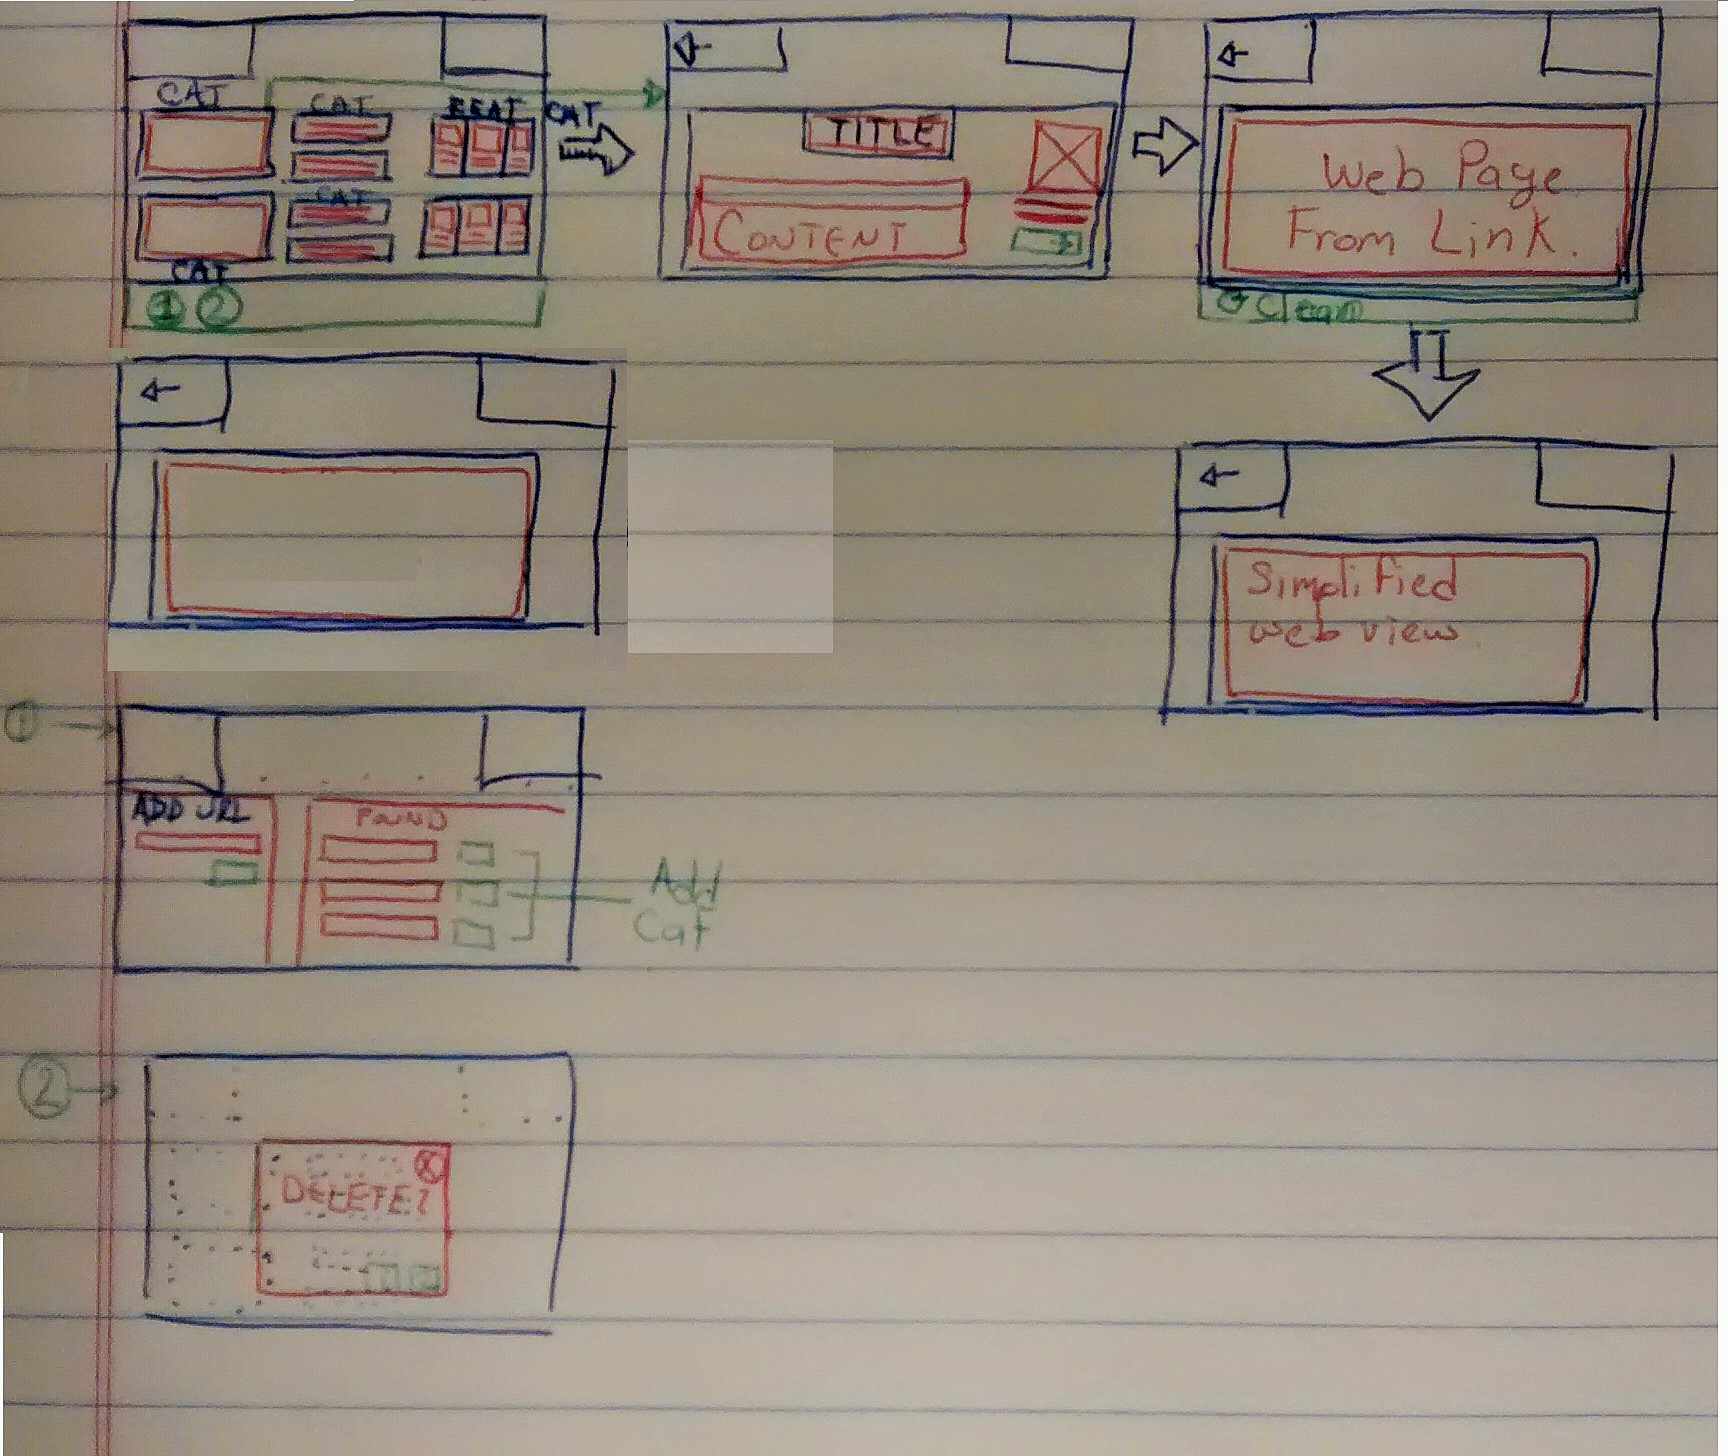 CAT
CAT
CAT
CAT
CAT
1 2
TITLE
CONTENT
Web Page
From Link.
Clean
Simplified
web view
1
ADD URL
FOUND
Add
Cat
2
DELETE?